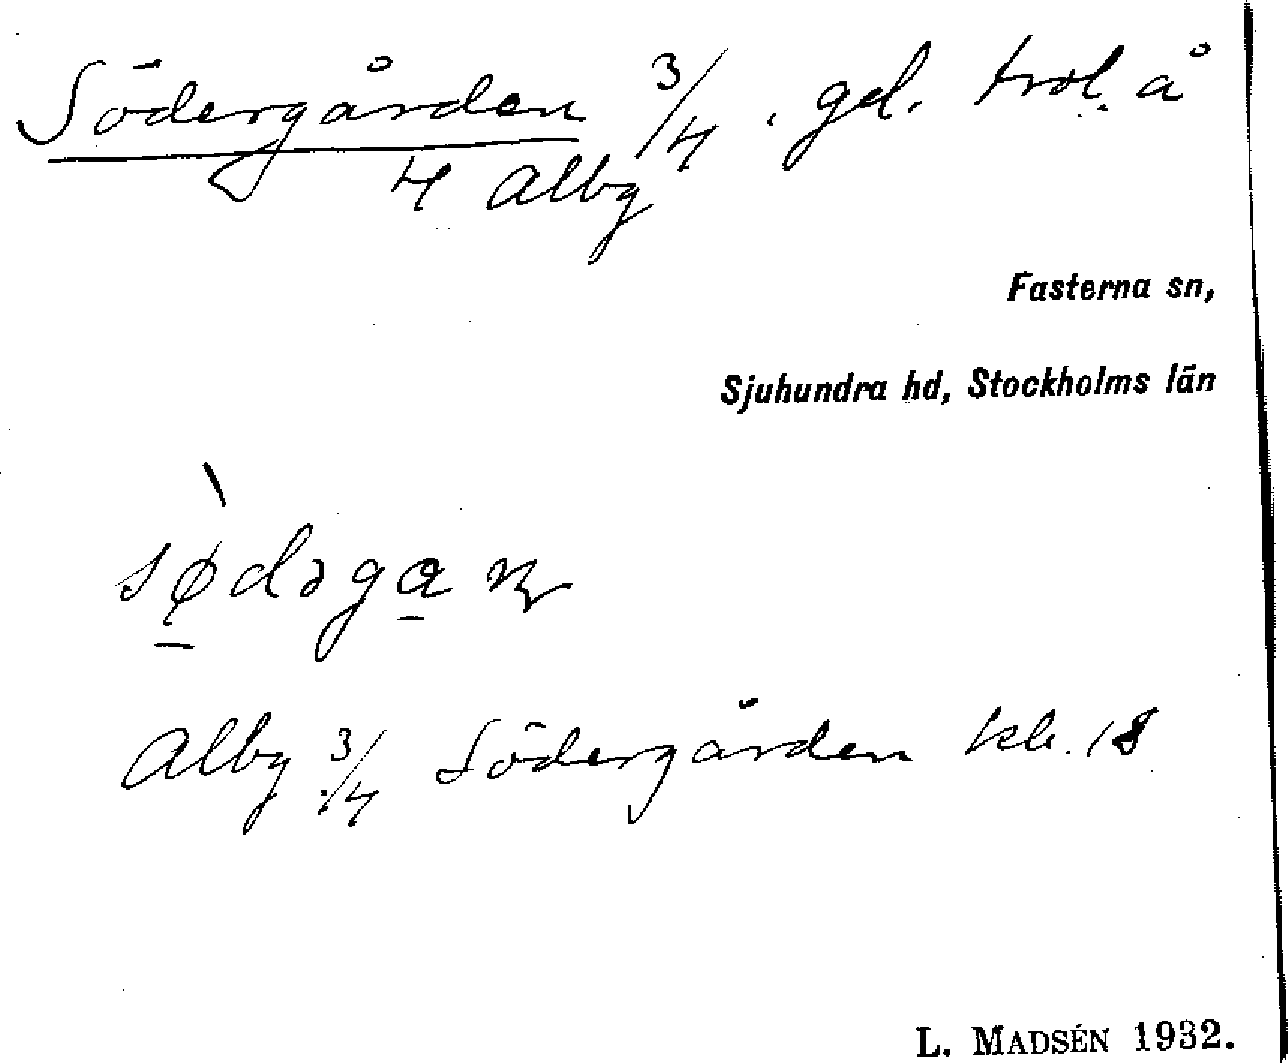 Södergården 3/4. gd. trol. å
4 Alby
Fasterna sn,
Sjuhundra hd, Stockholms län
sø̱dəga̱ɳ
Alby 3/4 Södergården kk. 18
L. MADSÉN 1932.